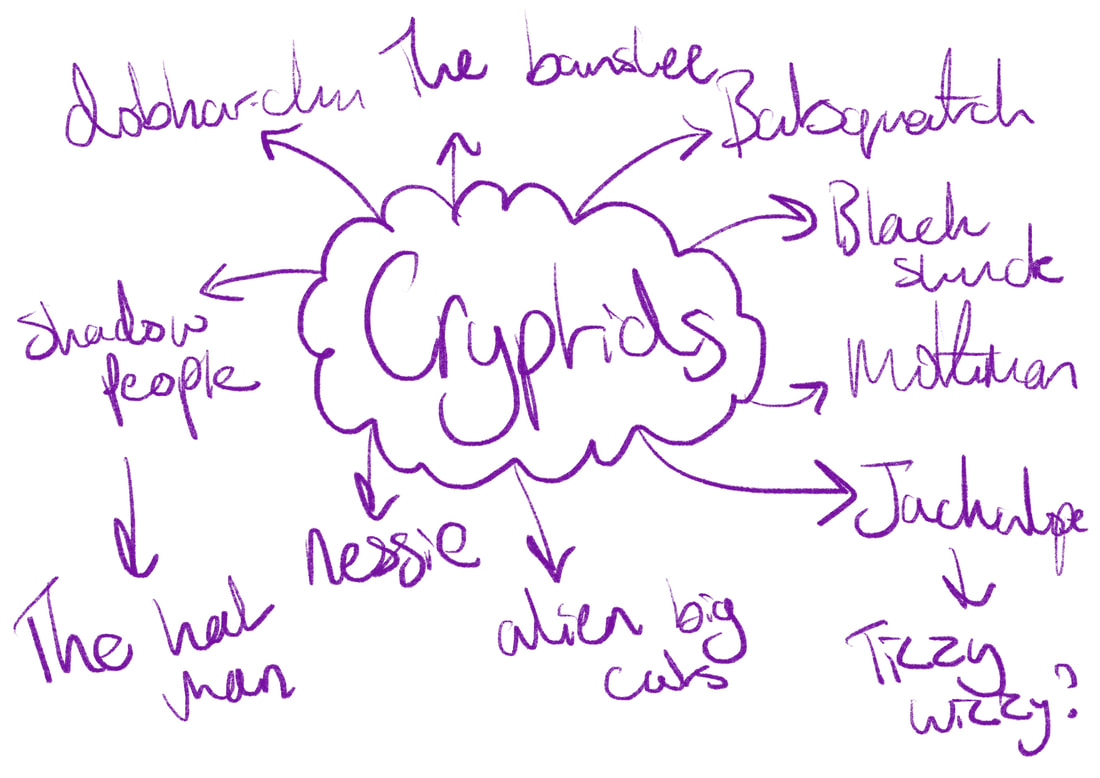 The banshee
dobhar-chu
Batsquatch
Black
shuck
Cryptids
Shadow
People
Mothman
Jackalope
nessie
The hat
man
alien big
cats
Tizzy
wizzy?